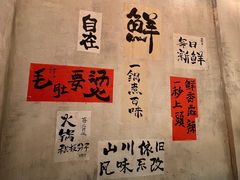 自在
鮮
每日
新鲜
一锅煮百味
毛肚要烫
鲜香麻辣
一秒上头
火锅
山川依旧
风味不改